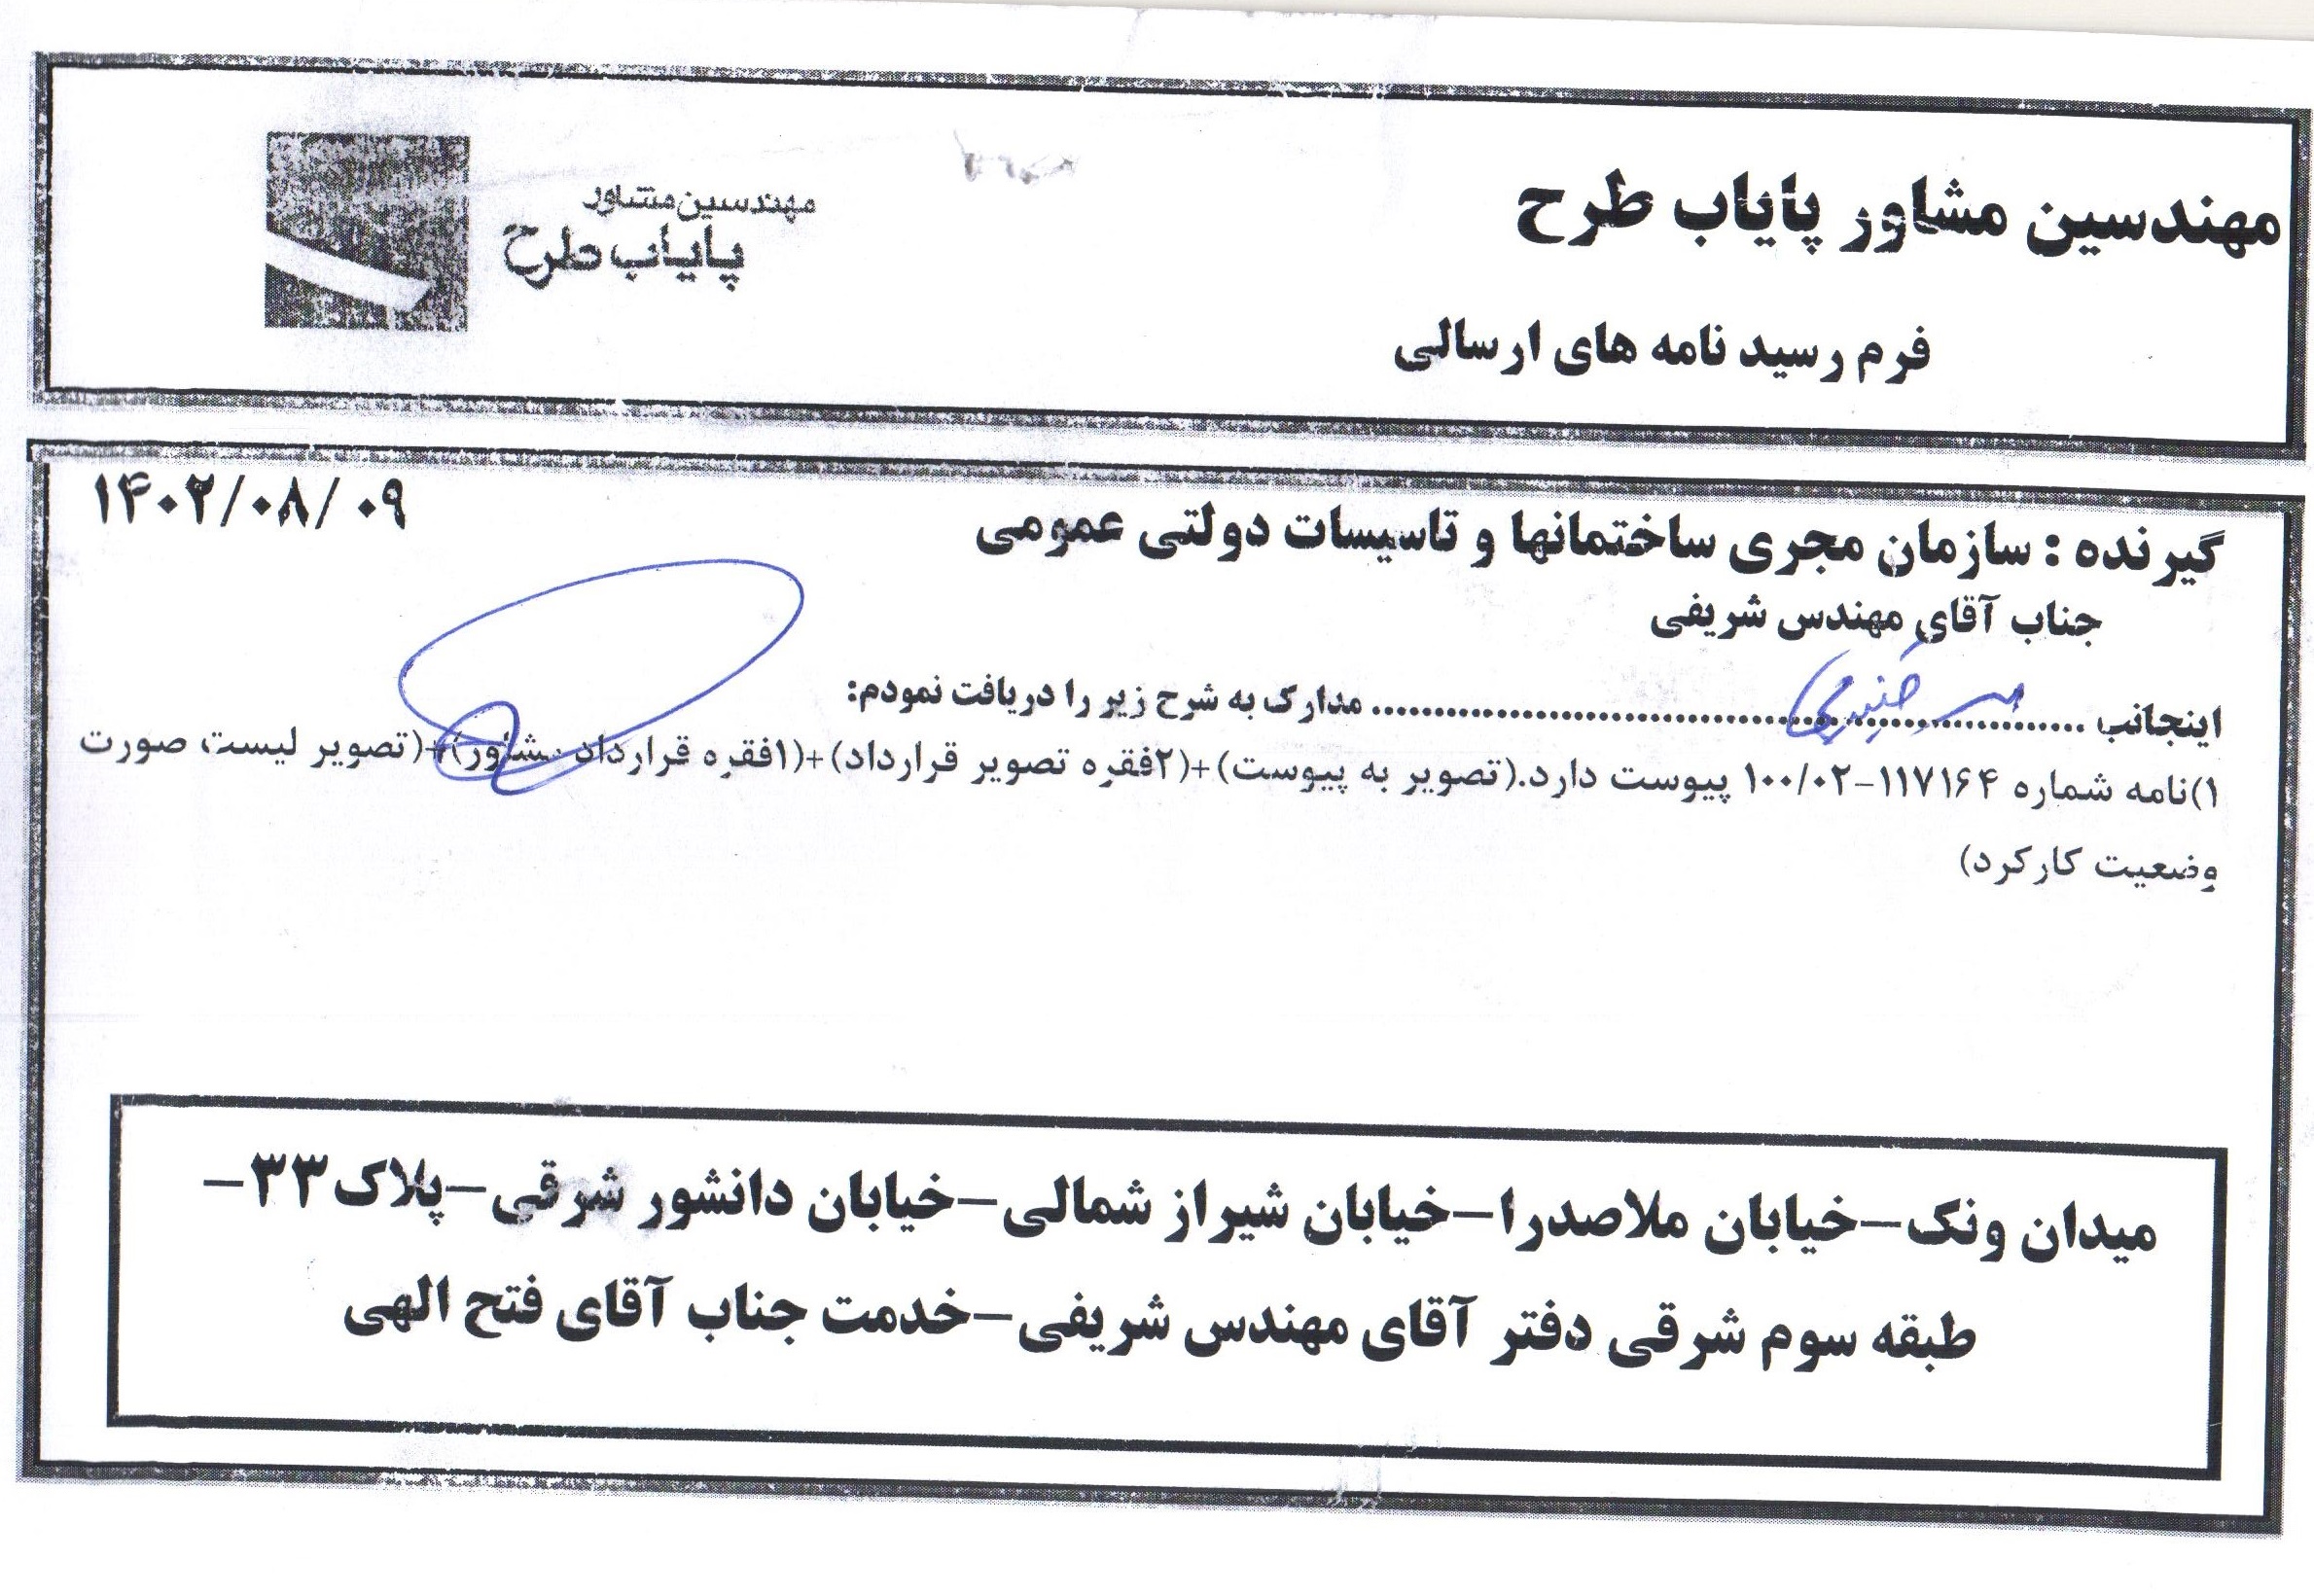 مهندسین مشاور پایاب طرح
مهندسین مشاور
پایاب طرح
فرم رسید نامه های ارسالی
۱۴۰۲/۰۸/۰۹
گیرنده : سازمان مجری ساختمانها و تاسیسات دولتی عمومی
جناب آقای مهندس شریفی
اینجانب ........................................................ مدارک به شرح زیر را دریافت نمودم:
۱)نامه شماره ۱۱۷۱۶۴-۱۰۰/۰۲ پیوست دارد.(تصویر به پیوست)+(۲فقره تصویر قرارداد)+(۱فقره قرارداد مشاور)+(تصویر لیست صورت
وضعیت کارکرد)
میدان ونک-خیابان ملاصدرا-خیابان شیراز شمالی-خیابان دانشور شرقی-پلاک۳۳-
طبقه سوم شرقی دفتر آقای مهندس شریفی-خدمت جناب آقای فتح الهی